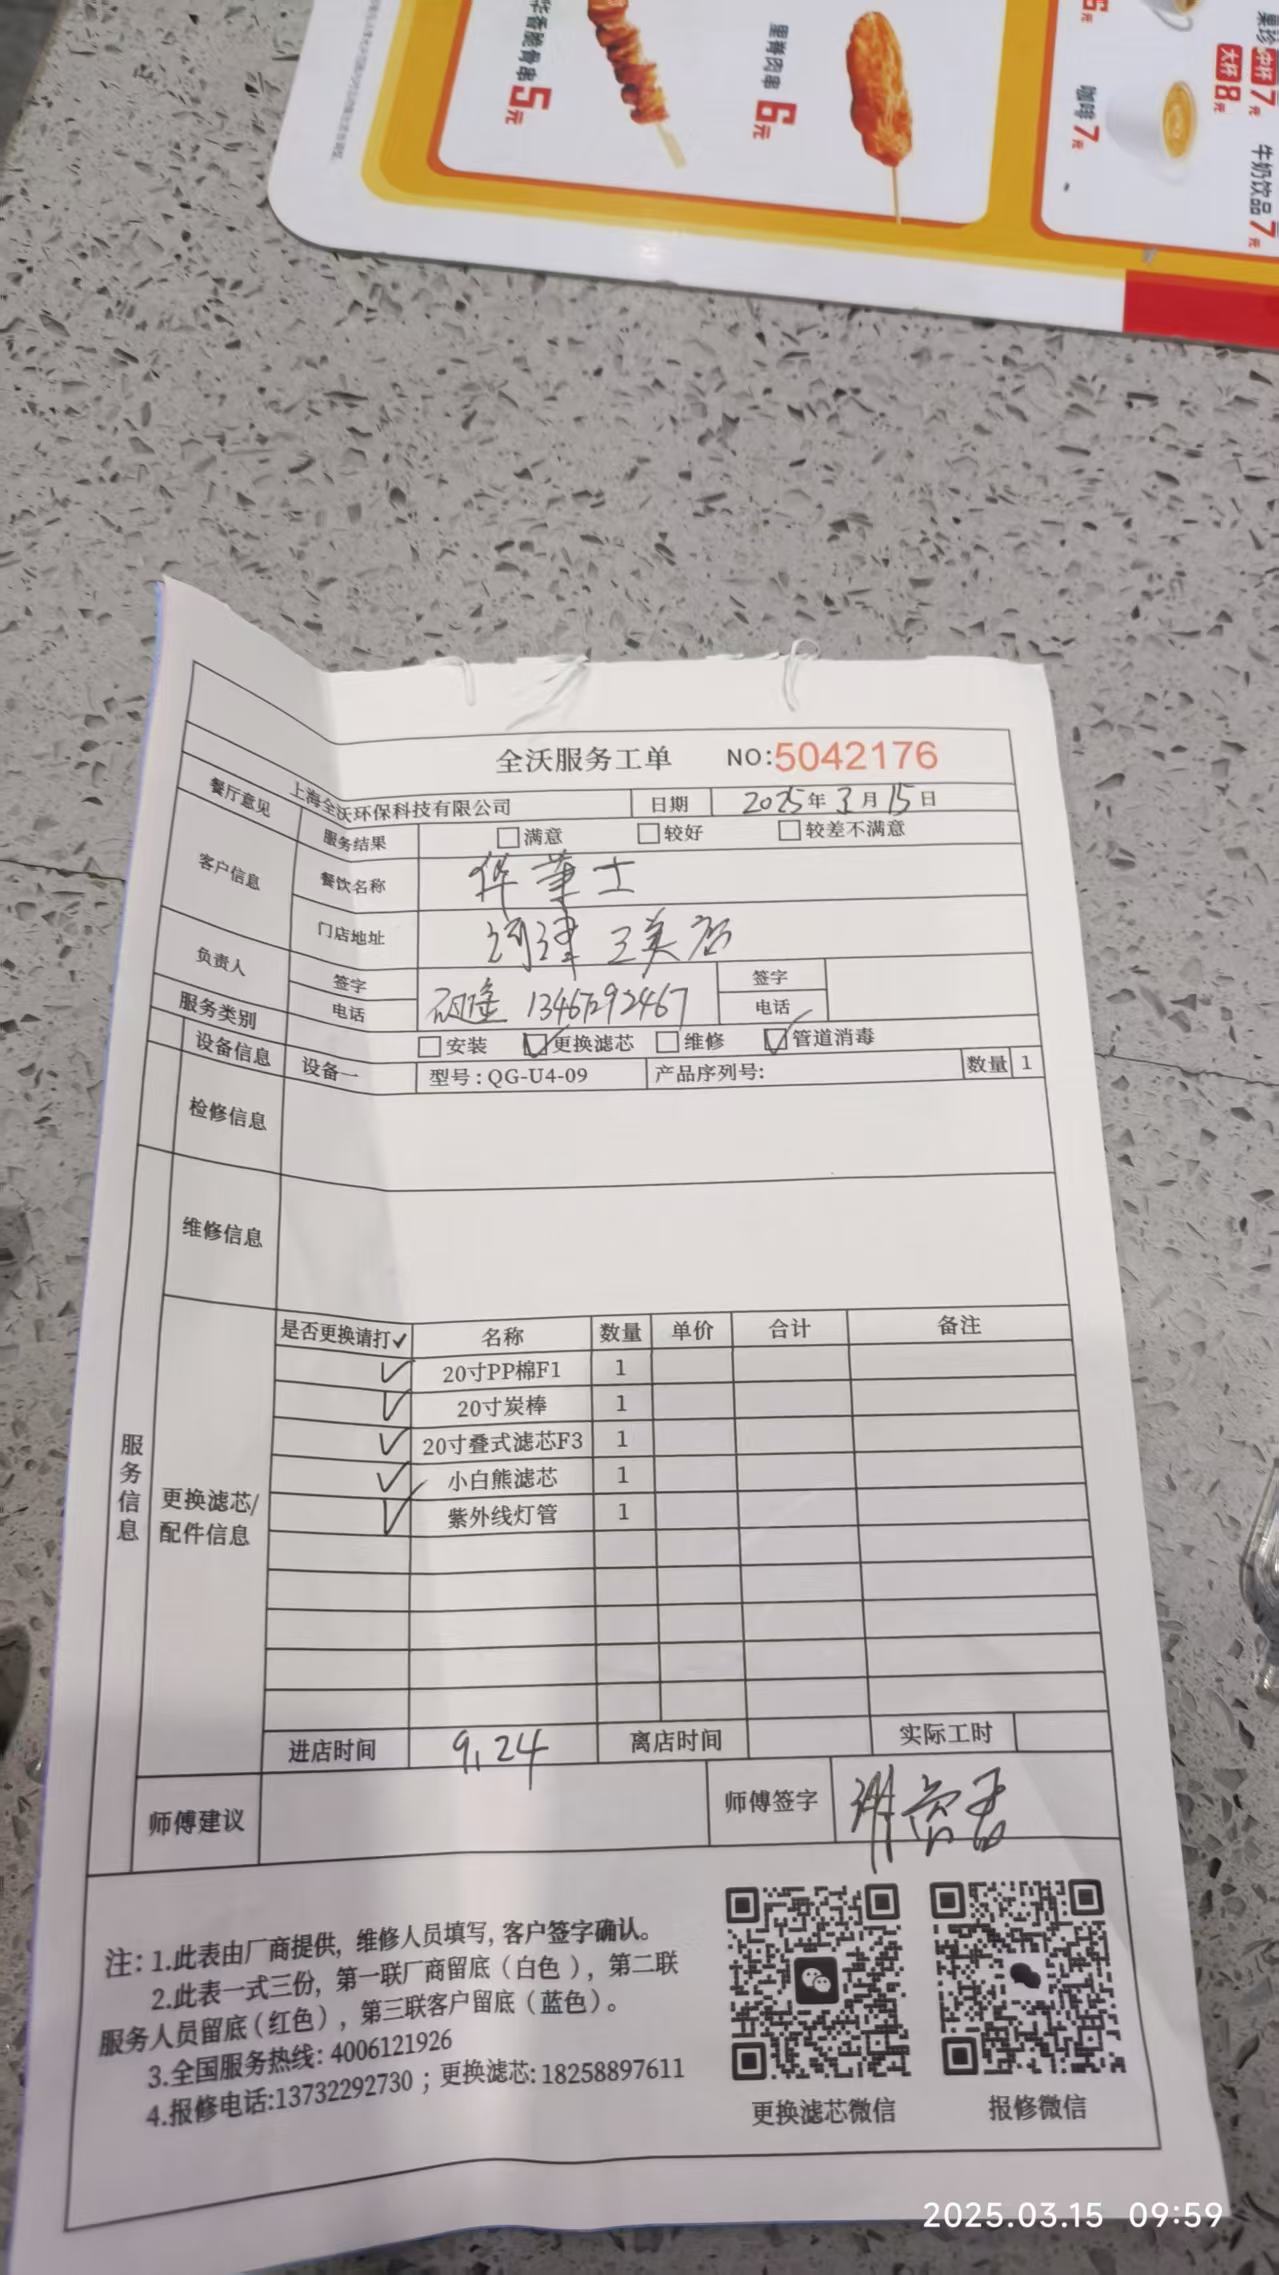 脆骨串 5元
里脊肉串 6元
6元
咖啡 7元
果珍 中杯 7元
大杯 8元
牛奶饮品 7元
全沃服务工单 NO:5042176
上海全沃环保科技有限公司 日期 2025年3月15日
餐厅意见 服务结果 □满意 □较好 □较差不满意
客户信息 餐饮名称 华莱士
门店地址 河津 王美店
负责人 签字 电话 13467292467 签字 电话
服务类别 □安装 ☑更换滤芯 □维修 ☑管道消毒
设备信息 设备一 型号:QG-U4-09 产品序列号: 数量 1
检修信息
维修信息
服务信息
更换滤芯/配件信息
是否更换请打✓ 名称 数量 单价 合计 备注
✓ 20寸PP棉F1 1
✓ 20寸炭棒 1
✓ 20寸叠式滤芯F3 1
✓ 小白熊滤芯 1
✓ 紫外线灯管 1
进店时间 9,24 离店时间 实际工时
师傅建议 师傅签字
注:1.此表由厂商提供, 维修人员填写, 客户签字确认。
2.此表一式三份, 第一联厂商留底(白色), 第二联
服务人员留底(红色), 第三联客户留底(蓝色)。
3.全国服务热线: 4006121926
4.报修电话:13732292730 ; 更换滤芯: 18258897611
更换滤芯微信 报修微信
2025.03.15 09:59